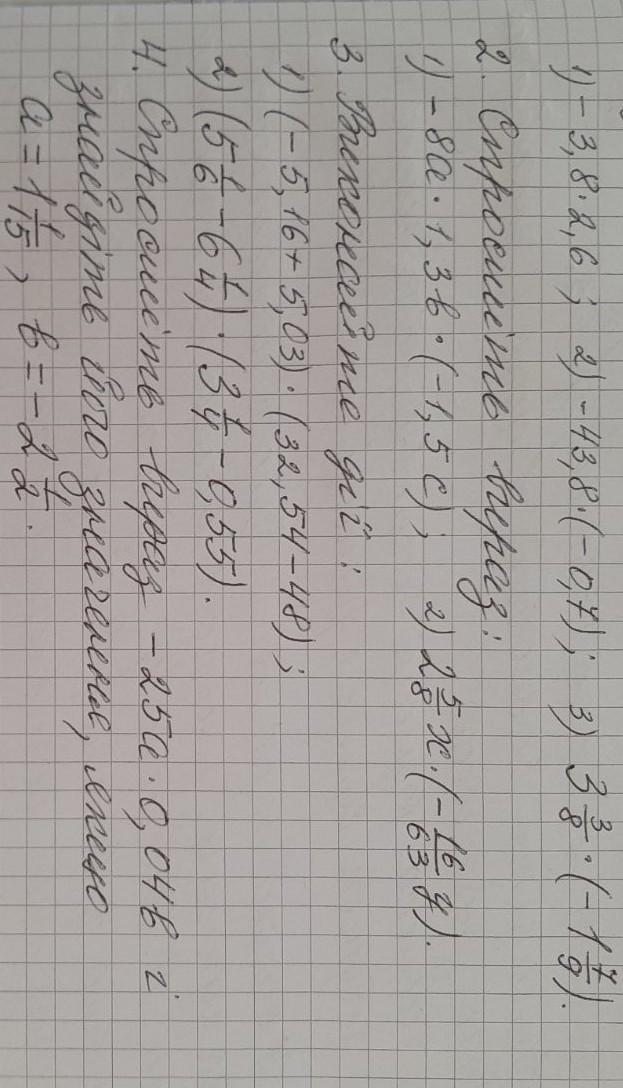 1) -3,8·2,6; 2) -43,8·(-0,7); 3) 3 3/8·(-1 7/9).
2. Спростіть вираз:
1) -8a·1,3b·(-1,5c); 2) 2 5/8 x·(-16/63 y).
3. Виконайте дії:
1) (-5,16+5,03)·(32,54-48);
2) (5 1/6 - 6 1/4)·(3 1/4 - 0,55).
4. Спростіть вираз -25a·0,04b і
знайдіть його значення, якщо
a=1 1/15, b=-2 1/2.